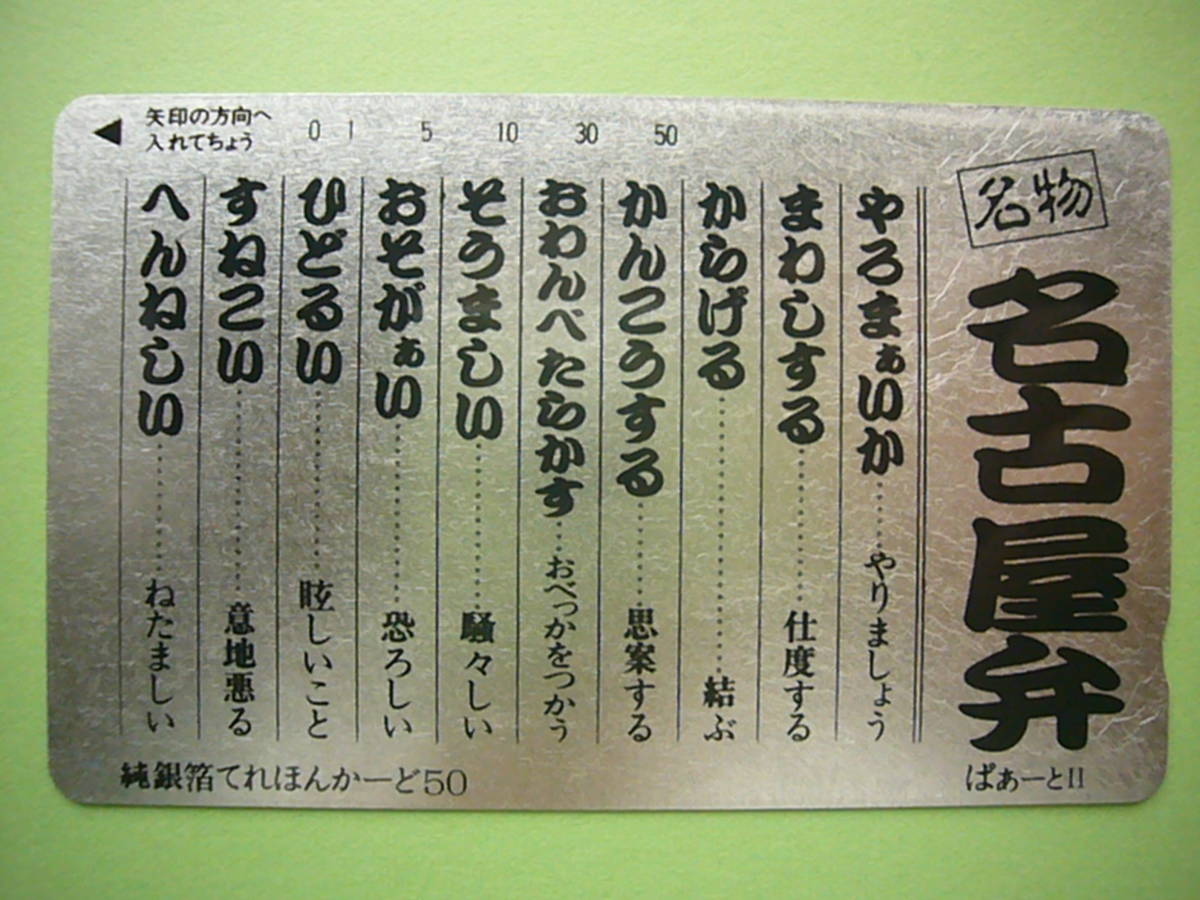 矢印の方向へ
入れてちょう
0 1 5 10 30 50
名物
名古屋弁
ぱぁーとII
やろまぁいか……やりましょう
まわしする………仕度する
からげる………結ぶ
かんこうする………思案する
おわんべたらかす…おべっかをつかう
そうましい………騒々しい
おそがぁい………恐ろしい
ひどるい………眩しいこと
すねこい………意地悪る
へんねしい………ねたましい
純銀箔てれほんかーど50